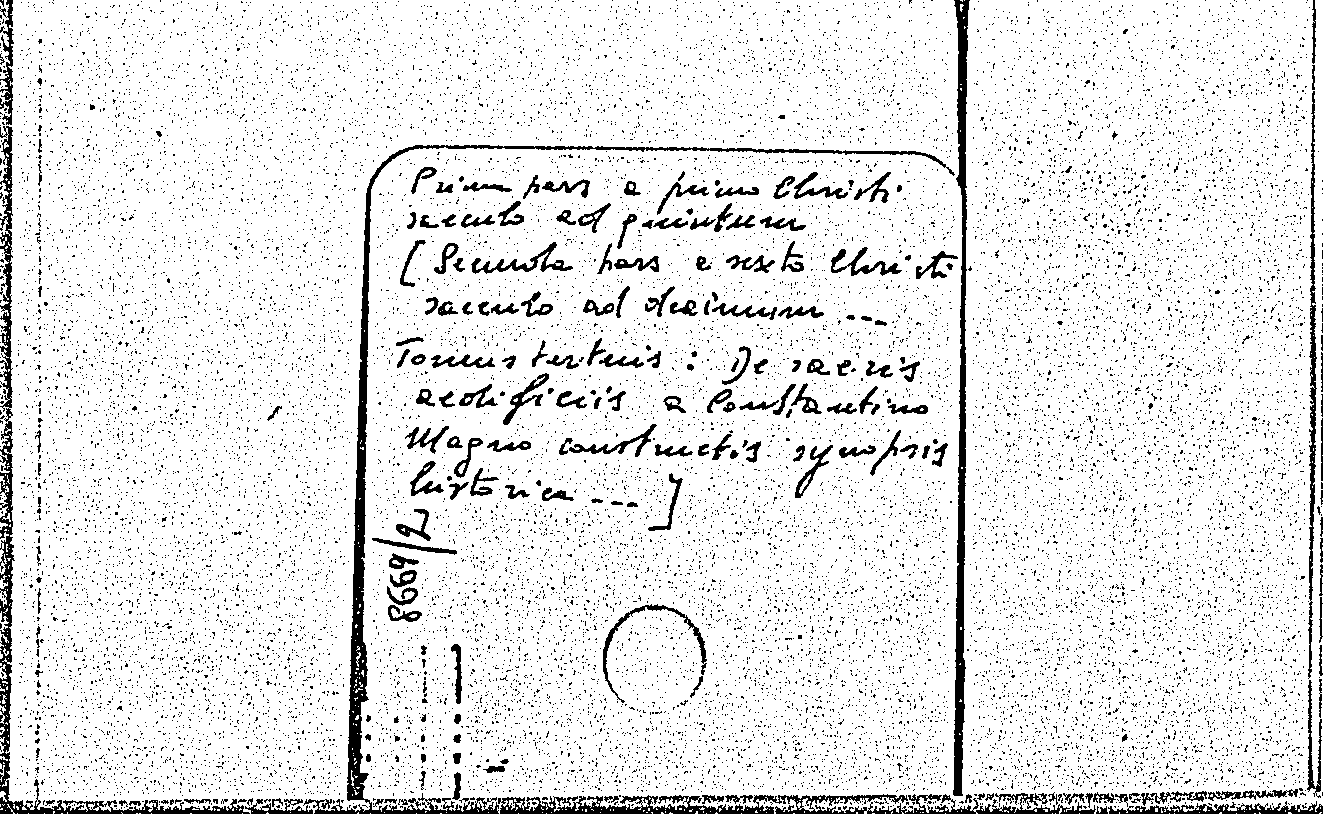 Prima pars a primo Christi
saeculo ad quintum
[Secunda pars a sexto Christi
saeculo ad decimum ---
Tomus tertius : De sacris
aedificiis a Constantino
Magno constructis synopsis
historica ---]
8669/2